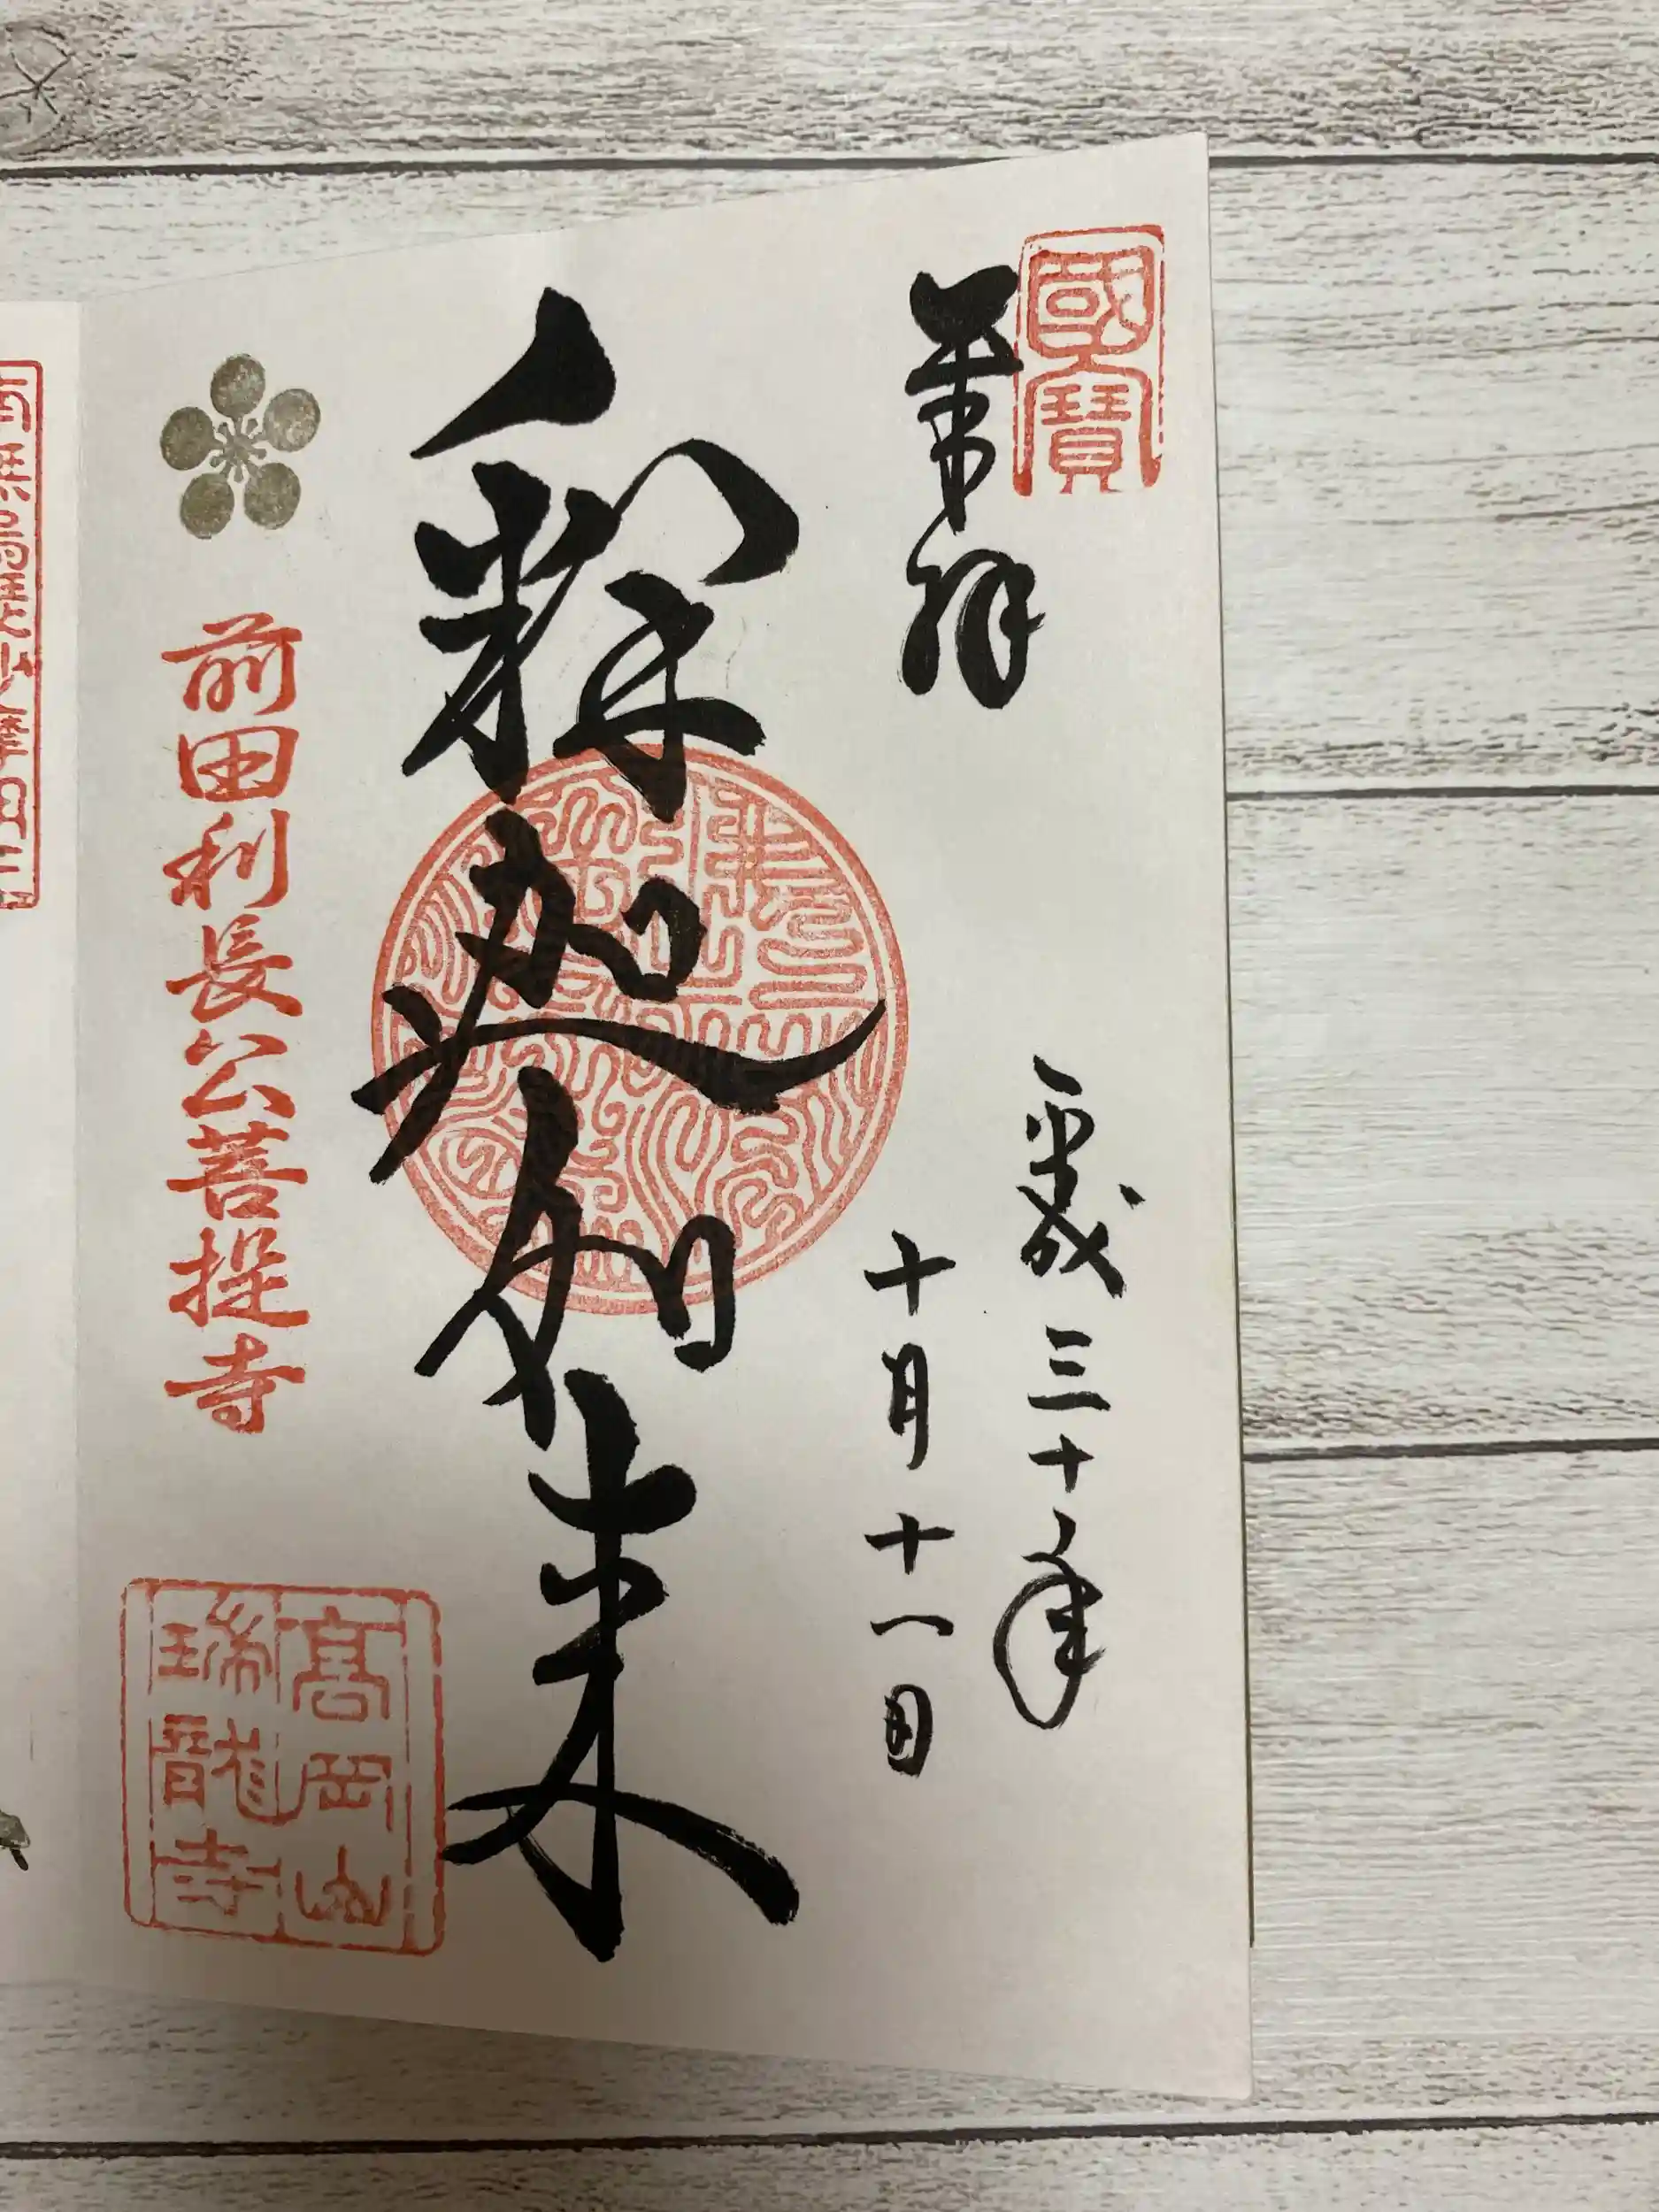 國寶
奉拝
平成三十年
十月十一日
釈迦如来
前田利長公菩提寺
高岡山
瑞龍寺